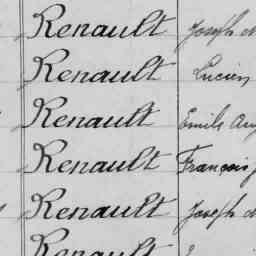 Renault Joseph
Renault Lucien
Renault Emile
Renault François
Renault Joseph
Renault